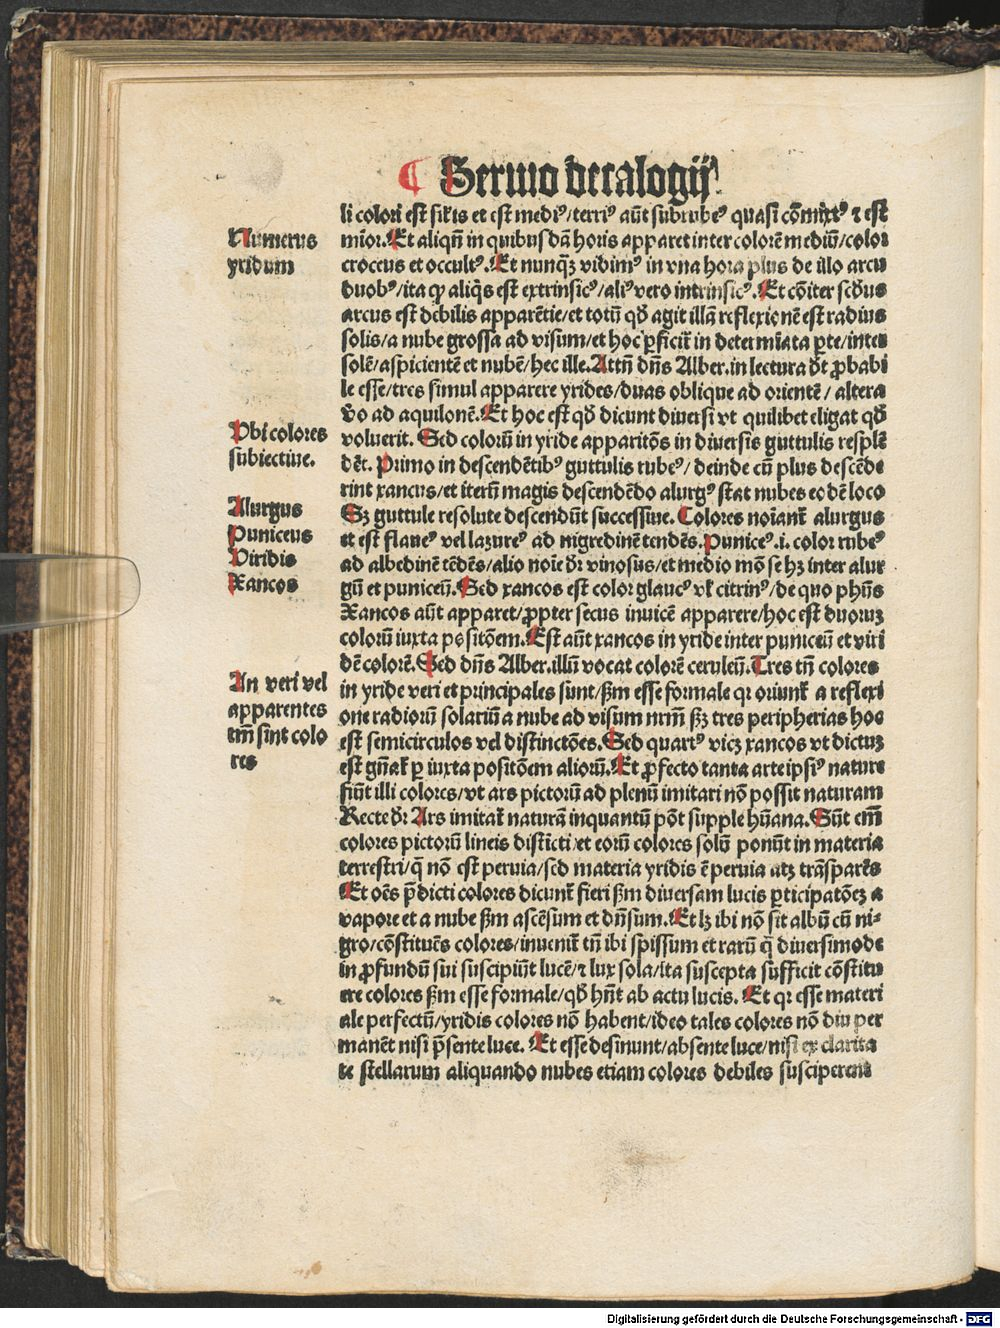 ¶ Sermo decalogij.
li colori est sil'is et est mediꝰ/terriꝰ aūt subrubeꝰ quasi cōmixtꝰ ⁊ est
Numerus
mīor. Et aliqn̄ in quibusdā horis apparet inter colorē mediū/color
yridum
croceus et occultꝰ. Et nunqꝫ vidimꝰ in vna hora plus de illo arcu
duobꝰ/ita ꝙ aliq̄s est extrinsicꝰ/aliꝰ vero intrinsicꝰ. Et cōiter scd̄us
arcus est debilis apparētie/et totū qd̄ agit illā reflexionē est radius
solis/a nube grossa ad visum/et hoc ꝑficit̄ in determīata ꝑte/inter
solē/aspicientē et nubē/hec ille. Attn̄ dn̄s Alber. in lectura dt̄ ꝓbabi
le esse/tres simul apparere yrides/duas oblique ad orientē/ altera
v̄o ad aquilonē. Et hoc est qd̄ dicunt diuersi vt quilibet eligat qd̄
Vbi colores
voluerit. Sed colorū in yride apparitōs in diuersis guttulis resplē
subiectiue.
dēt. Primo in descendētibꝰ guttulis rubeꝰ/ deinde cū plus descēde
rint xancus/et iterū magis descendēdo alurgꝰ stat nubes eodē loco
Alurgus
Sꝫ guttule resolute descendūt successiue. Colores noīant̄ alurgus
Puniceus
et est flaueꝰ vel lazureꝰ ad nigredinē tendēs. Puniceꝰ .i. color rubeꝰ
Viridis
ad albedinē tēdēs/alio noīe dr̄ vinosus/et medio mō se hꝫ inter alur
Xancos
gū et puniceū. Sed xancos est color glaucꝰ vl' citrinꝰ/de quo ph̄us
Xancos aūt apparet/ꝓpter secus inuicē apparere/hoc est duorum
colorū iuxta positōem. Est aūt xancos in yride inter puniceū et viri
dē colorē. Sed dn̄s Alber. illū vocat colorē ceruleū. Tres tn̄ colores
An veri vel
in yride veri et principales sunt/ẜm esse formale qꝛ oriunt̄ a reflexi
apparentes
one radiorū solariū a nube ad visum nr̄m ẜꝫ tres peripherias hoc
tm̄ sint colo
est semicirculos vel distinctōes. Sed quartꝰ vicꝫ xancos vt dictum
res
est gn̄at̄ ꝑ iuxta positōem aliorū. Et ꝓfecto tanta arte ipsiꝰ nature
fiūt illi colores/vt ars pictorū ad plenū imitari nō possit naturam
Recte dr̄: Ars imitat̄ naturā inquantū pōt supple hūana. Sūt em̄
colores pictorū lineis distīcti/et eorū colores solū ponūt in materia
terrestri/q̄ nō est peruia/sed materia yridis ē peruia atqꝫ trāsparēs
Et oēs p̄dicti colores dicunt̄ fieri ẜm diuersam lucis ꝑticipatōeꝫ a
vapore et a nube ẜm ascēsum et dn̄sum. Et lꝫ ibi nō sit albū cū ni-
gro/cōstituēs colores/inuenit̄ tn̄ ibi spissum et rarū q̄ diuersimode
in ꝓfundū sui suscipiūt lucē/⁊ lux sola/ita suscepta sufficit cōstitu
ere colores ẜm esse formale/qd̄ hn̄t ab actu lucis. Et qꝛ esse materi
ale perfectū/yridis colores nō habent/ideo tales colores nō diu per
manēt nisi p̄sente luce. Et esse desinunt/absente luce/nisi ex clarita
te stellarum aliquando nubes etiam colores debiles susciperent